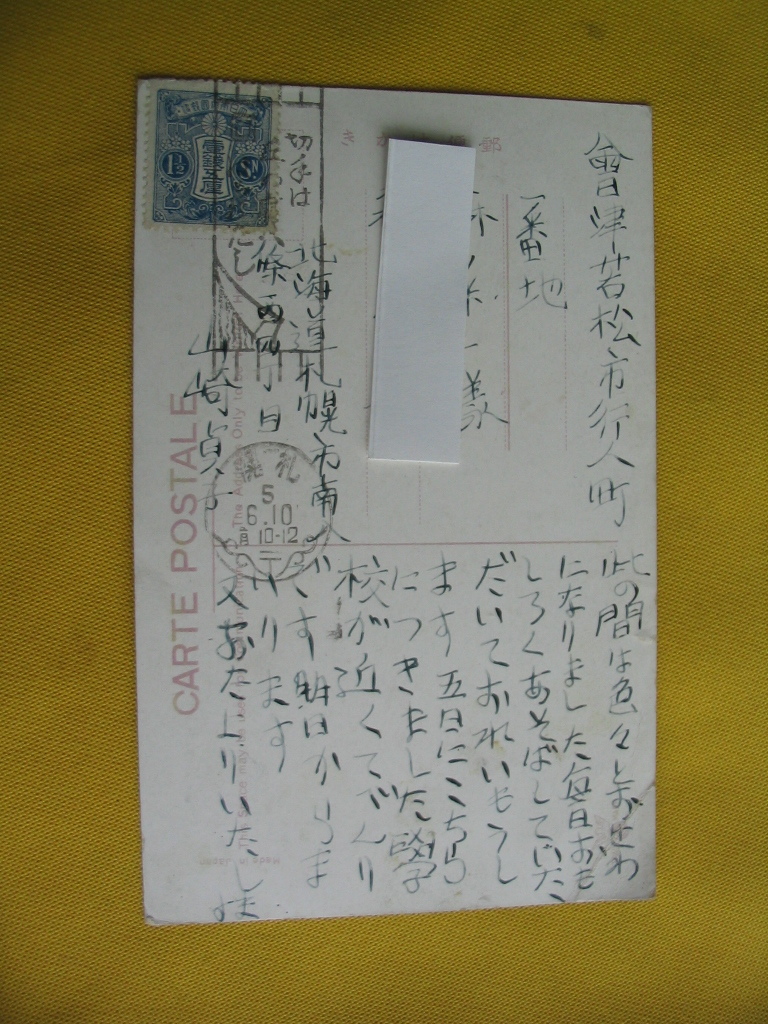 會津若松市行人町
一番地
様
北海道札幌市南八
條西四丁目
山崎貞子
此の間は色々とおせわ
になりました毎日おも
しろくあそばしていた
だいておれいもうし
ます五日にこちら
につきました學
校が近くてべんり
です明日からま
いります
又おたよりいたしま
CARTE POSTALE
切手は
1½ SN
壹錢五厘
札幌
5
6.10
前10-12